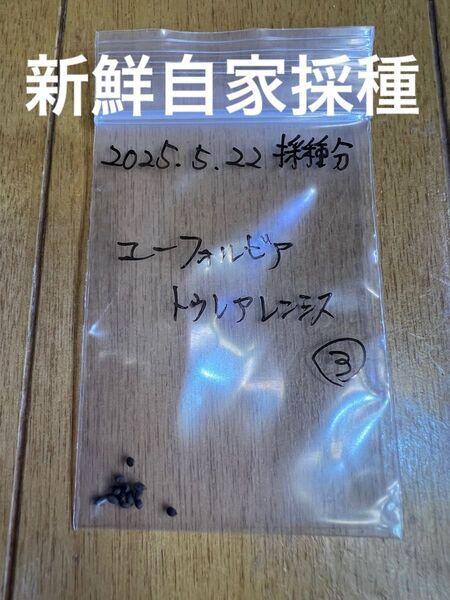 新鮮自家採種
2025.5.22 採種分
ユーフォルビア
トゥレアレンシス
③